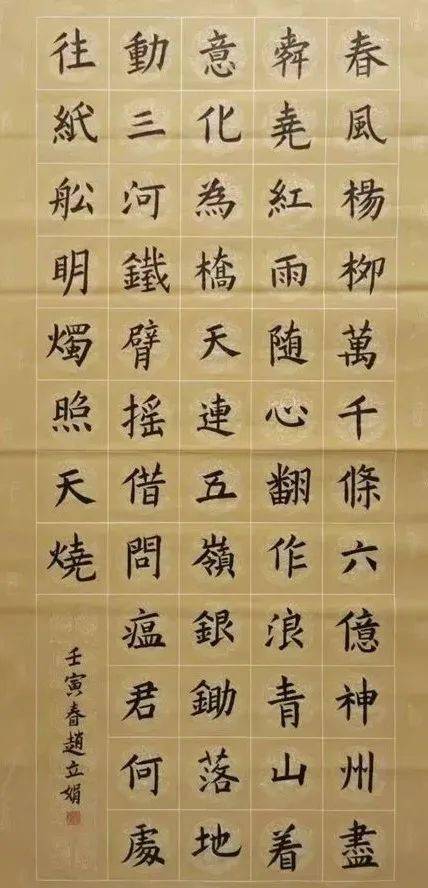 春風楊柳萬千條六億神州盡
舜堯紅雨随心翻作浪青山着
意化為橋天連五嶺銀鋤落地
動三河鐵臂摇借問瘟君何處
往紙舩明燭照天燒
壬寅春趙立娟